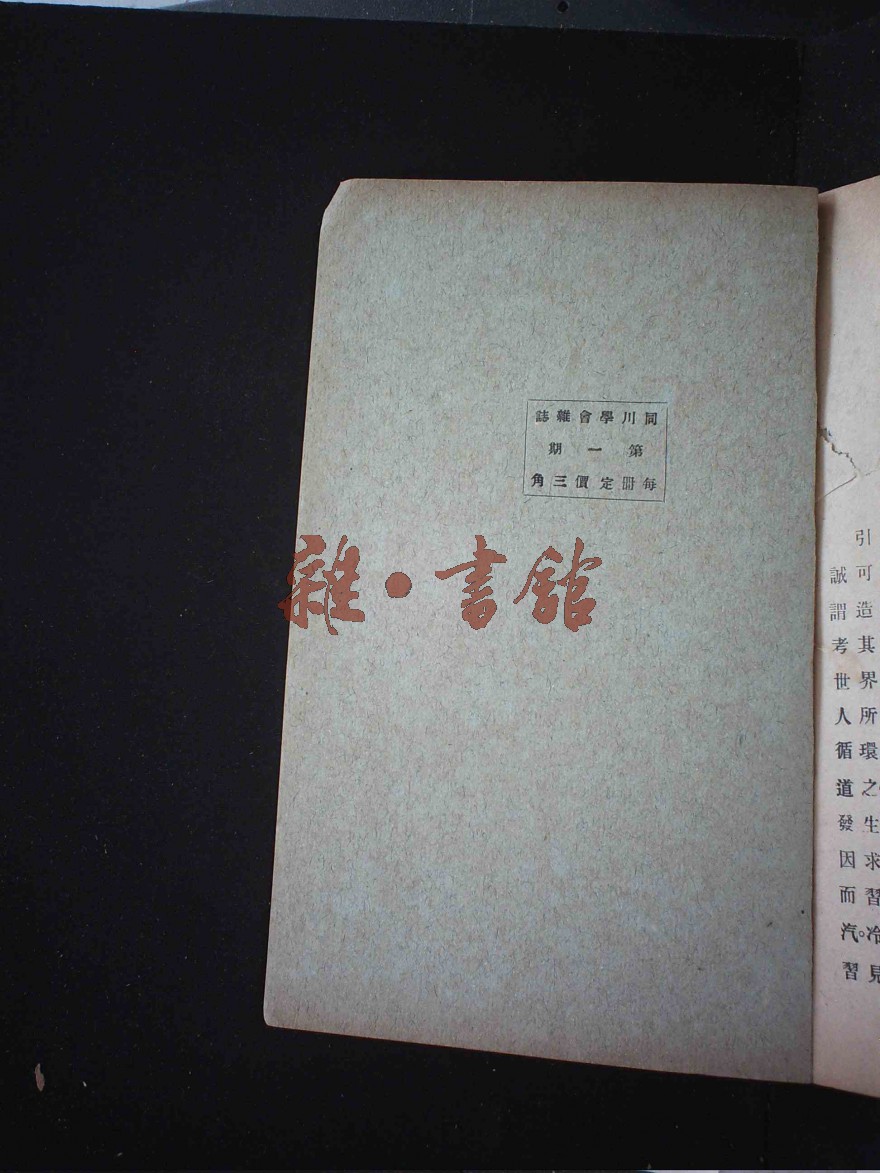 同川學會雜誌
第一期
每冊定價三角
雜·書館
引可造其界所環之生求習冷見
誠謂考世人循道發因而汽習